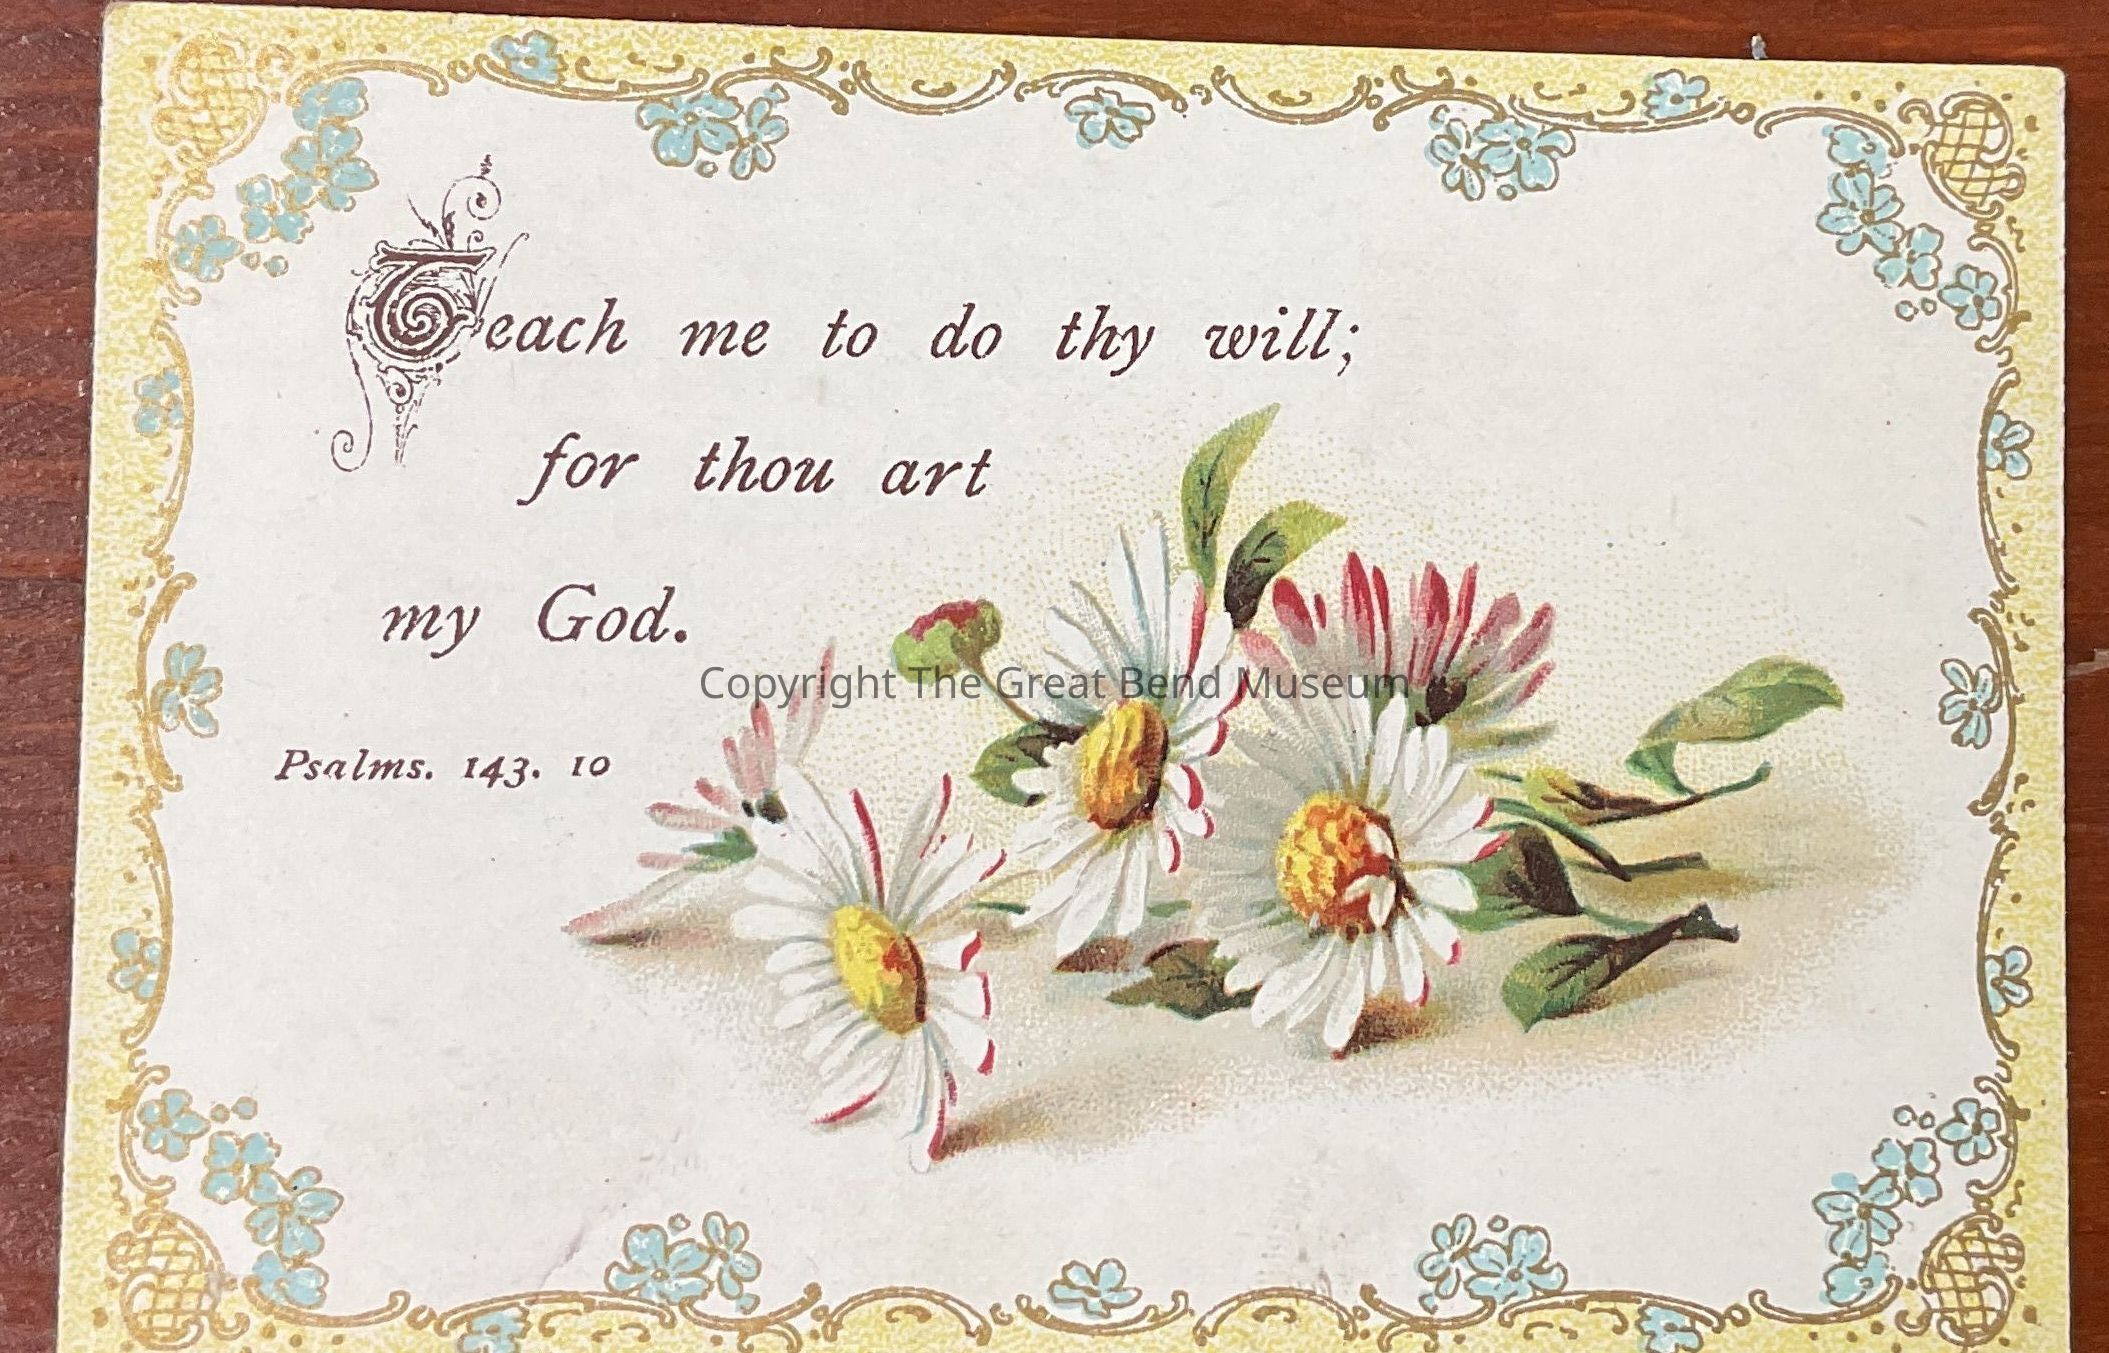 Teach me to do thy will;
for thou art
my God.
Copyright The Great Bend Museum
Psalms. 143. 10